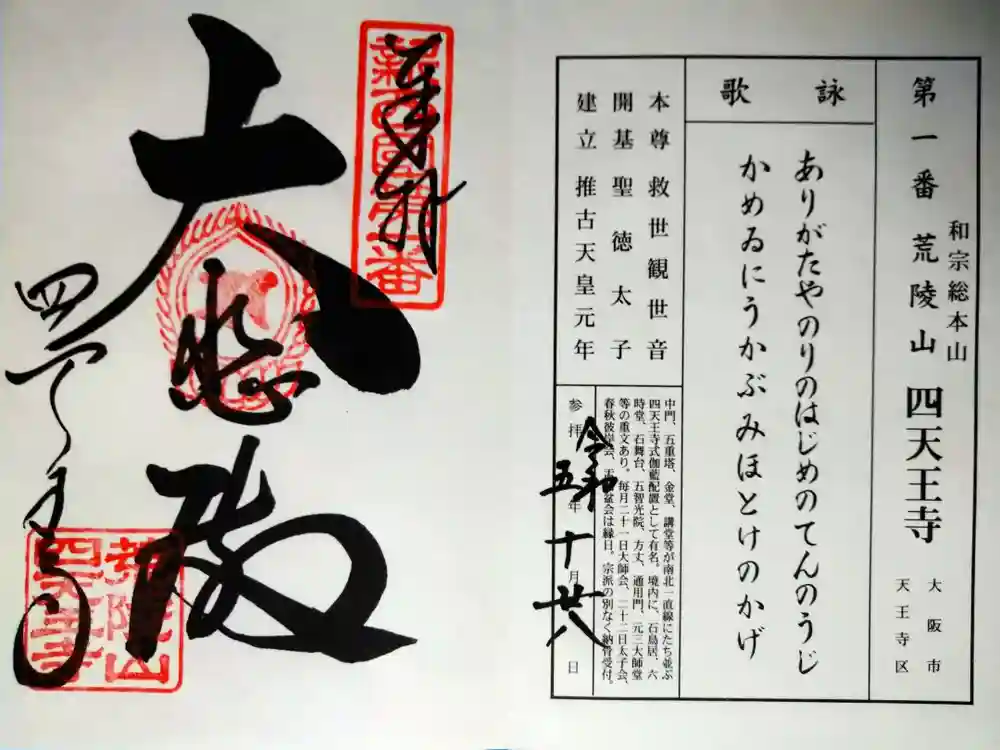 和宗総本山
第一番 荒陵山 四天王寺
大阪市
天王寺区
詠歌
ありがたやのりのはじめのてんのうじ
かめゐにうかぶみほとけのかげ
本尊 救世観世音
開基 聖徳太子
建立 推古天皇元年
中門、五重塔、金堂、講堂等が南北一直線にたち並ぶ
四天王寺式伽藍配置として有名。境内に、石鳥居、六
時堂、石舞台、五智光院、方丈、通用門、元三大師堂
等の重文あり。毎月二十一日大師会、二十二日太子会、
春秋彼岸会、盂蘭盆会は縁日。宗派の別なく納骨受付。
参拝 令和五年十月廿八日
奉拝
新西国第一番
大悲殿
四天王寺
荒陵山
四天王寺